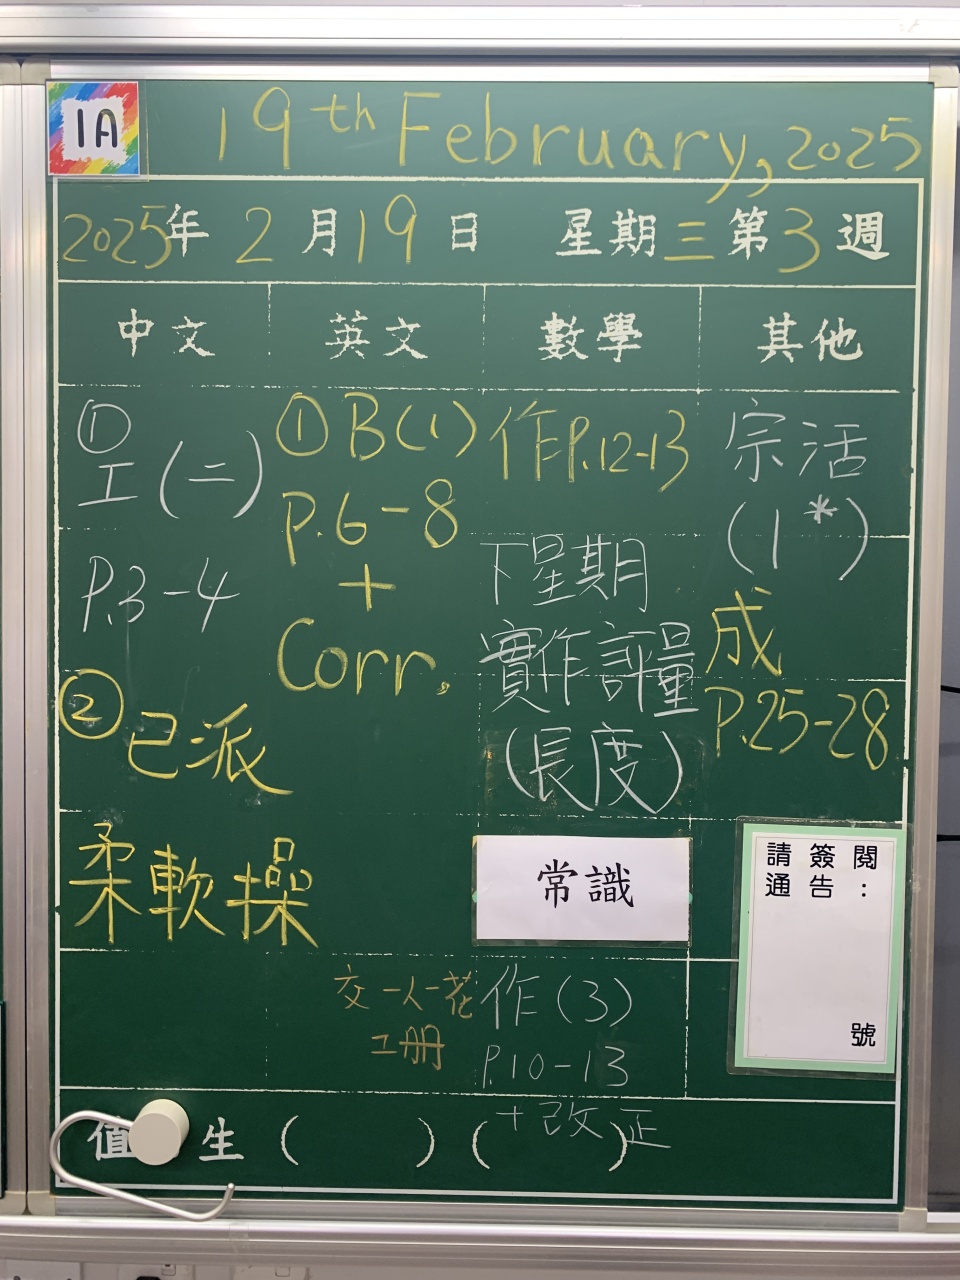 1A
19th February, 2025
2025年 2月19日 星期三第3週
中文 英文 數學 其他
①
工(二)
P.3-4
②已派
柔軟操
①B(1)
P.6-8
+
Corr.
作P.12-13
下星期
實作評量
(長度)
宗活
(1*)
成
P.25-28
常識
作(3)
P.10-13
+改正
交一人一花
工冊
請簽閱
通告:
號
值 生( )( )